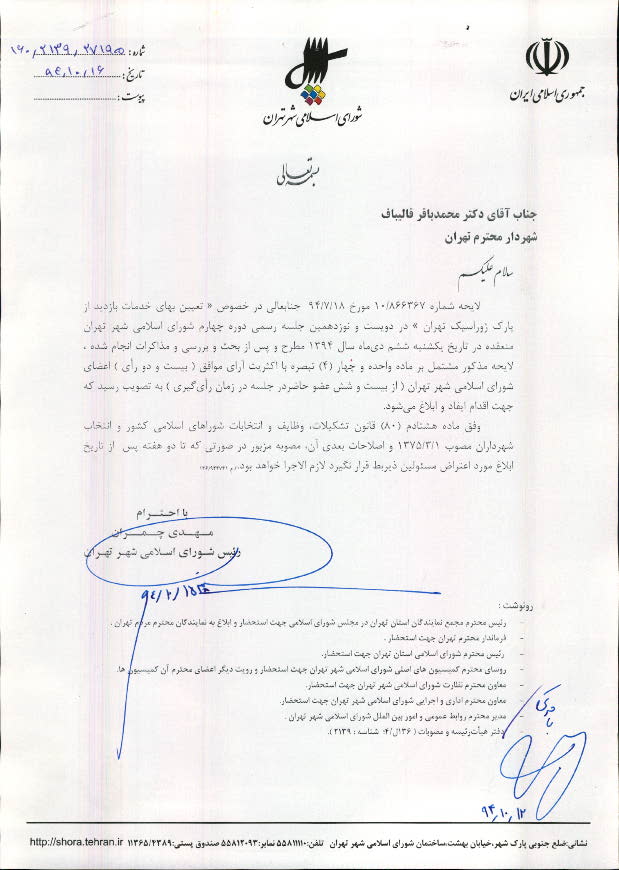 جمهوری اسلامی ایران
شورای اسلامی شهر تهران
شماره : ۱۶۰/۲۱۳۹/۲۷۱۹۵
تاریخ : ۹۴/۱۰/۱۶
پیوست :
بسمه تعالی
جناب آقای دکتر محمدباقر قالیباف
شهردار محترم تهران
سلام علیکم
لایحه شماره ۱۰/۸۶۶۳۶۷ مورخ ۹۴/۷/۱۸ جنابعالی در خصوص « تعیین بهای خدمات بازدید از
پارک ژوراسیک تهران » در دویست و نوزدهمین جلسه رسمی دوره چهارم شورای اسلامی شهر تهران
منعقده در تاریخ یکشنبه ششم دی‌ماه سال ۱۳۹۴ مطرح و پس از بحث و بررسی و مذاکرات انجام شده ،
لایحه مذکور مشتمل بر ماده واحده و چهار (۴) تبصره با اکثریت آرای موافق ( بیست و دو رأی ) اعضای
شورای اسلامی شهر تهران ( از بیست و شش عضو حاضردر جلسه در زمان رأی‌گیری ) به تصویب رسید که
جهت اقدام ایفاد و ابلاغ می‌شود.
وفق ماده هشتادم (۸۰) قانون تشکیلات، وظایف و انتخابات شوراهای اسلامی کشور و انتخاب
شهرداران مصوب ۱۳۷۵/۳/۱ و اصلاحات بعدی آن، مصوبه مزبور در صورتی که تا دو هفته پس از تاریخ
ابلاغ مورد اعتراض مسئولین ذیربط قرار نگیرد لازم الاجرا خواهد بود.
با احترام
مهدی چمران
رئیس شورای اسلامی شهر تهران
رونوشت :
- رئیس محترم مجمع نمایندگان استان تهران در مجلس شورای اسلامی جهت استحضار و ابلاغ به نمایندگان محترم مردم تهران .
- فرماندار محترم تهران جهت استحضار .
- رئیس محترم شورای اسلامی استان تهران جهت استحضار.
- روسای محترم کمیسیون های اصلی شورای اسلامی شهر تهران جهت استحضار و رویت دیگر اعضای محترم آن کمیسیون ها.
- معاون محترم نظارت شورای اسلامی شهر تهران جهت استحضار.
- معاون محترم اداری و اجرایی شورای اسلامی شهر تهران جهت استحضار.
- مدیر محترم روابط عمومی و امور بین الملل شورای اسلامی شهر تهران .
- دفتر هیأت‌رئیسه و مصوبات ( ۱۳۶ل/۴؛ شناسه : ۲۱۳۹).
۹۴/۱۰/۱۲
نشانی:ضلع جنوبی پارک شهر،خیابان بهشت،ساختمان شورای اسلامی شهر تهران تلفن:۵۵۸۱۱۱۱۰ نمابر:۵۵۸۱۲۰۹۳ صندوق پستی:۱۱۳۶۵/۴۳۸۹ http://shora.tehran.ir